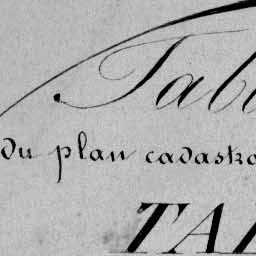 Tabl
du plan cadastra
TAB